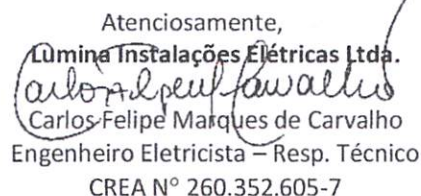 Atenciosamente,
Lumina Instalações Elétricas Ltda.
Carlos Felipe Marques de Carvalho
Engenheiro Eletricista – Resp. Técnico
CREA N° 260.352.605-7